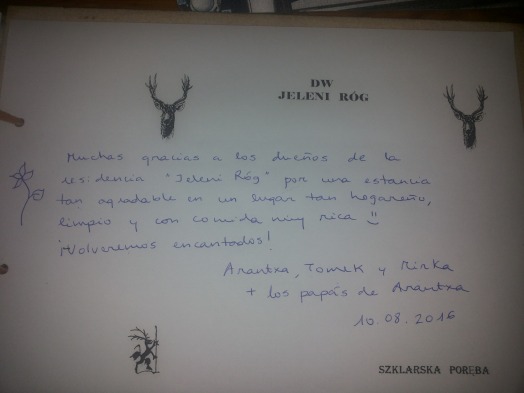 DW
JELENI RÓG
Muchas gracias a los dueños de la
residencia "Jeleni Róg" por una estancia
tan agradable en un lugar tan hogareño,
limpio y con comida muy rica :)
¡Volveremos encantados!
Arantxa, Tomek y Mirka
+ los papás de Arantxa
10.08.2016
SZKLARSKA PORĘBA